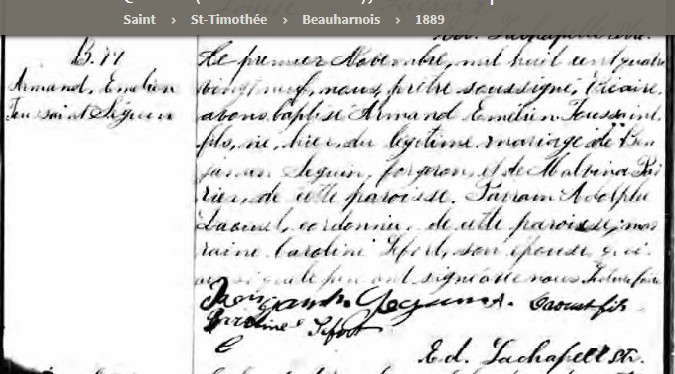 Saint › St-Timothée › Beauharnois › 1889
Ed. Lachapelle Ptr.
B. 77
Armand, Emelien
Toussaint Séguin
Le premier Novembre, mil huit cent quatre
vingt neuf, nous, prêtre soussigné, Vicaire,
avons baptisé Armand Emélien Toussaint
fils, né, hier, du légitime mariage de Ben
jamin Séguin, forgeron, et de Malvina Poi
rier, de cette paroisse. Parrain Adolphe
Daoust, cordonnier, de cette paroisse; mar
raine Caroline Lefort, son épouse, qui
ainsi que le père ont signé avec nous. Lecture faite
Benjamin Seguin A. Daoust fils
Caroline Lefort
Ed. Lachapelle Ptr.